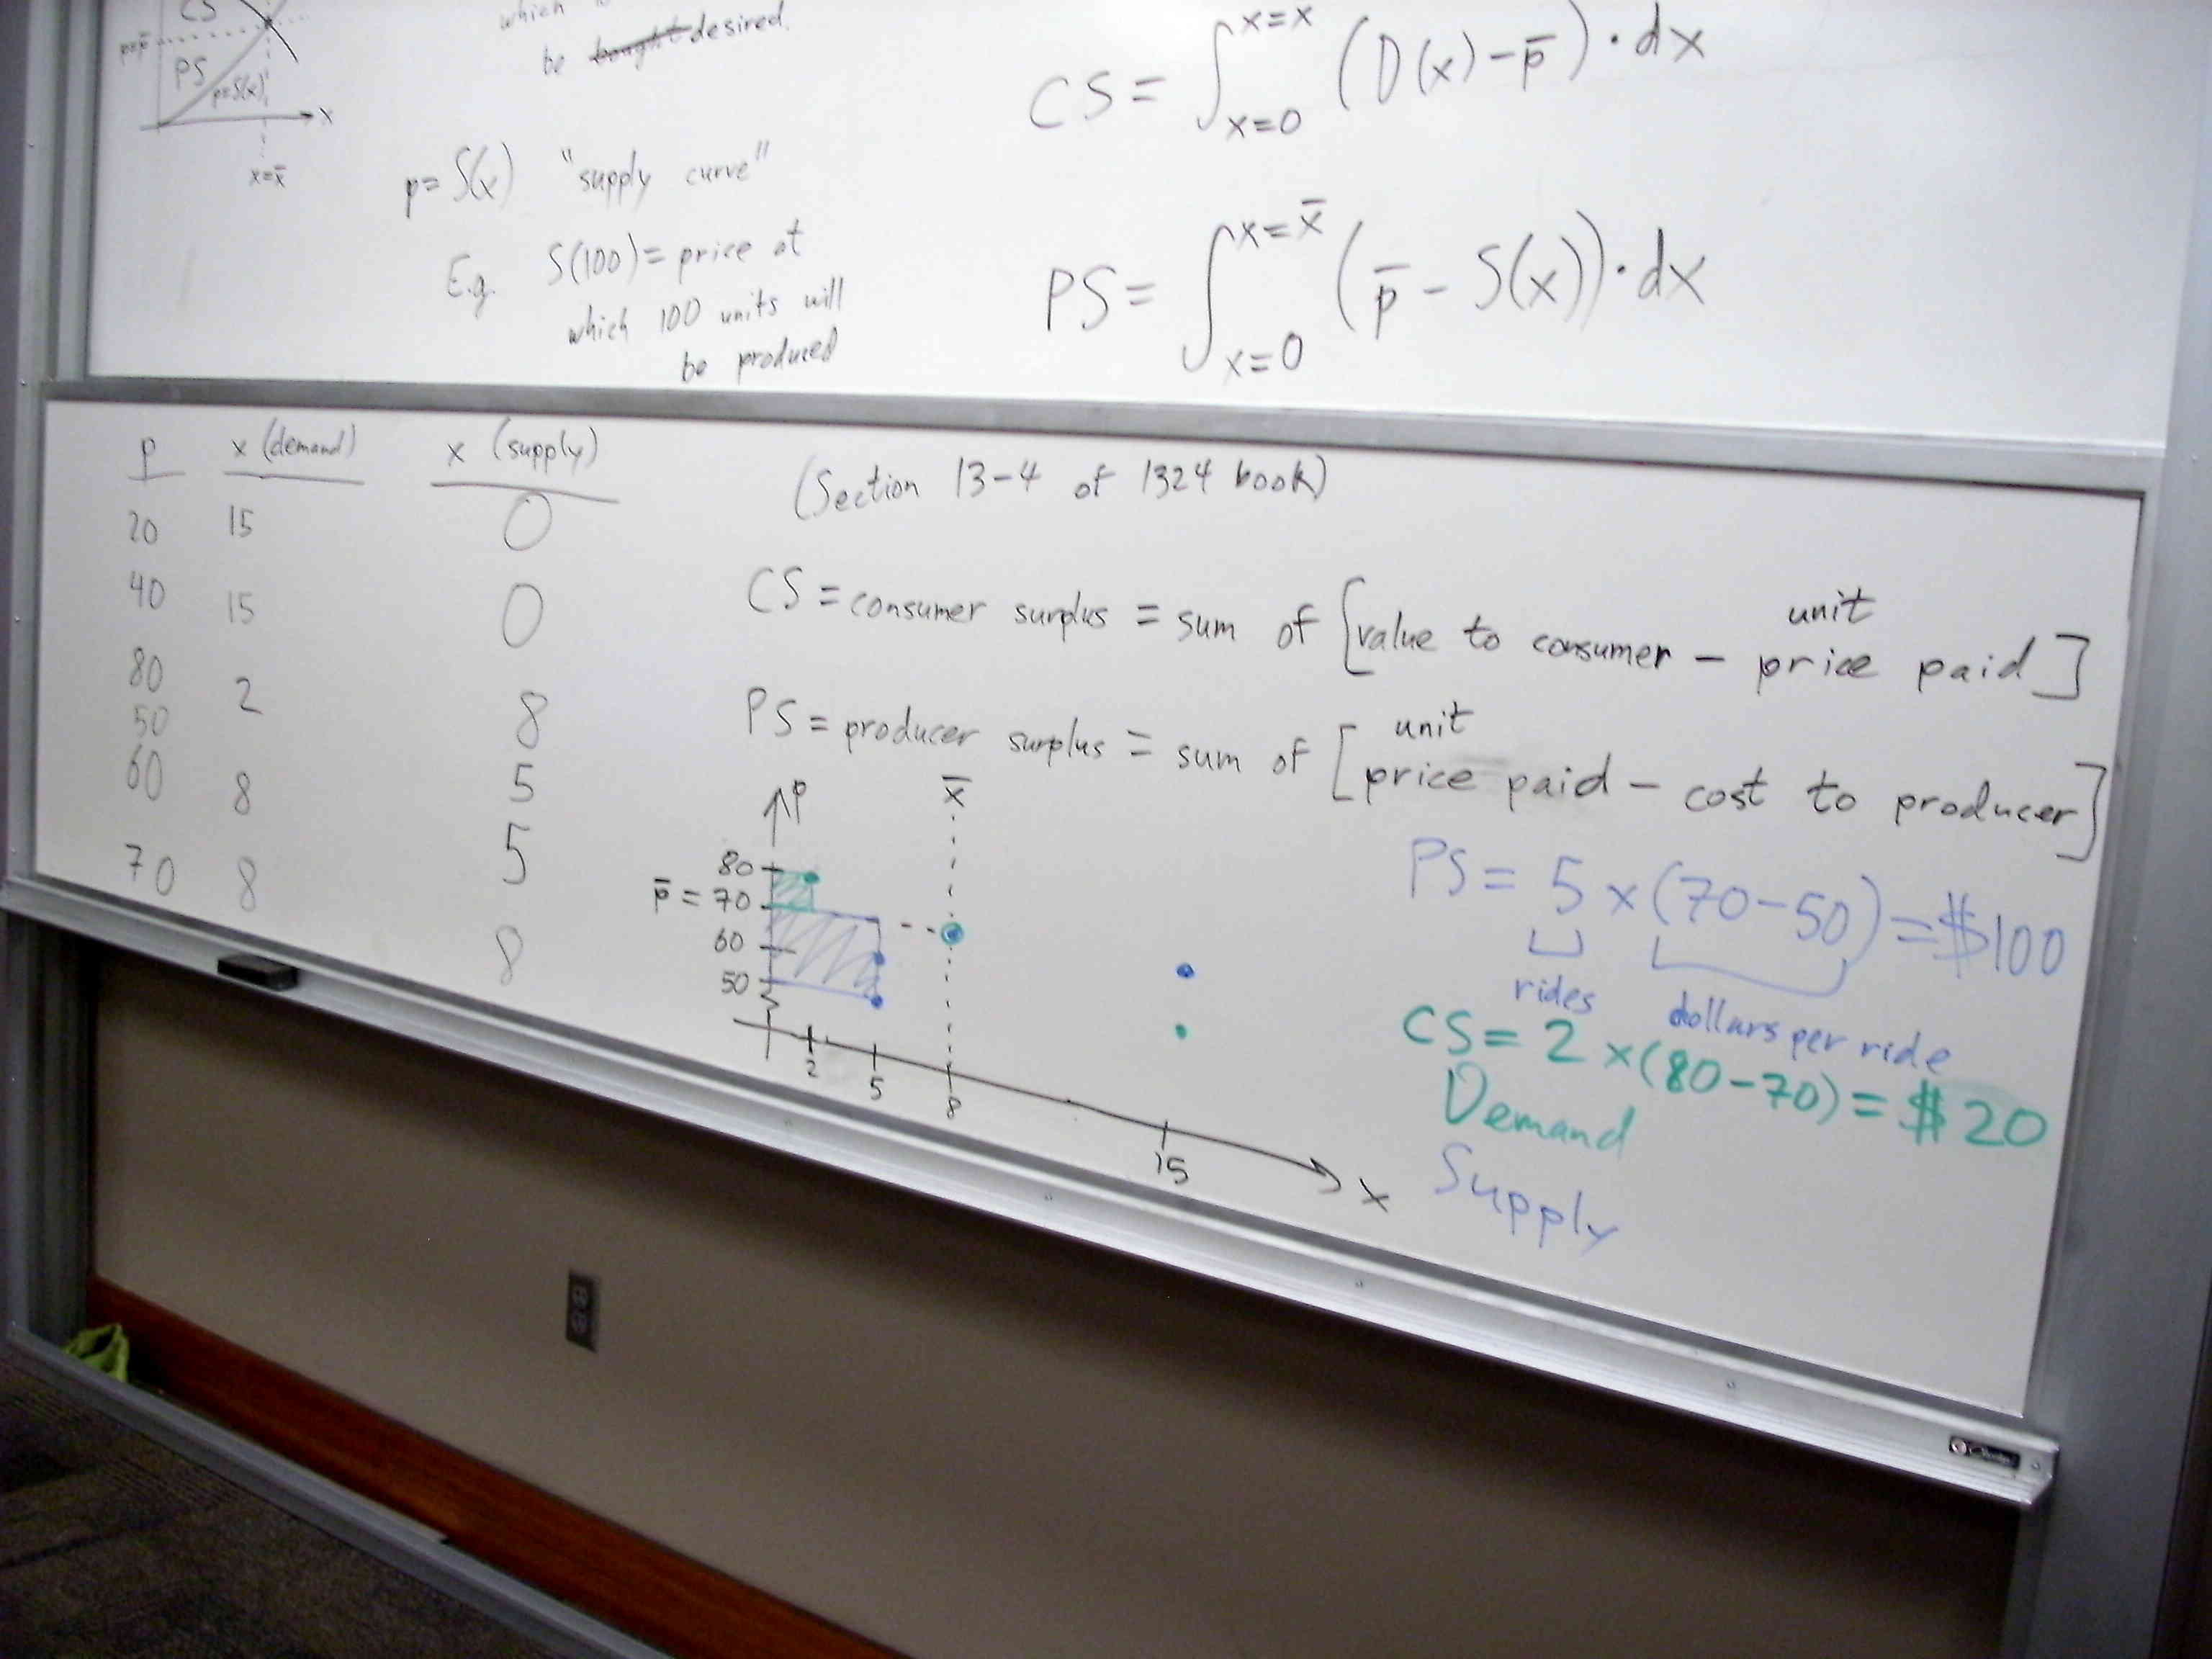 CS
p=p̄
PS
p=S(x)
x
x=x̄
which
be bought desired.
p=S(x) "supply curve"
E.g. S(100)= price at
which 100 units will
be produced
CS = ∫ x=x x=0 (D(x)-p̄)·dx
PS = ∫ x=x̄ x=0 (p̄ - S(x))·dx
p x (demand) x (supply)
20 15 0
40 15 0
80 2 8
50 5
60 8 5
70 8 8
(Section 13-4 of 1324 book)
CS = consumer surplus = sum of [value to consumer - unit price paid]
PS = producer surplus = sum of [unit price paid - cost to producer]
p
x̄
80
p̄ = 70
60
50
2 5 8 15 x
PS = 5 x (70-50) = $100
rides dollars per ride
CS = 2 x (80-70) = $20
Demand
Supply